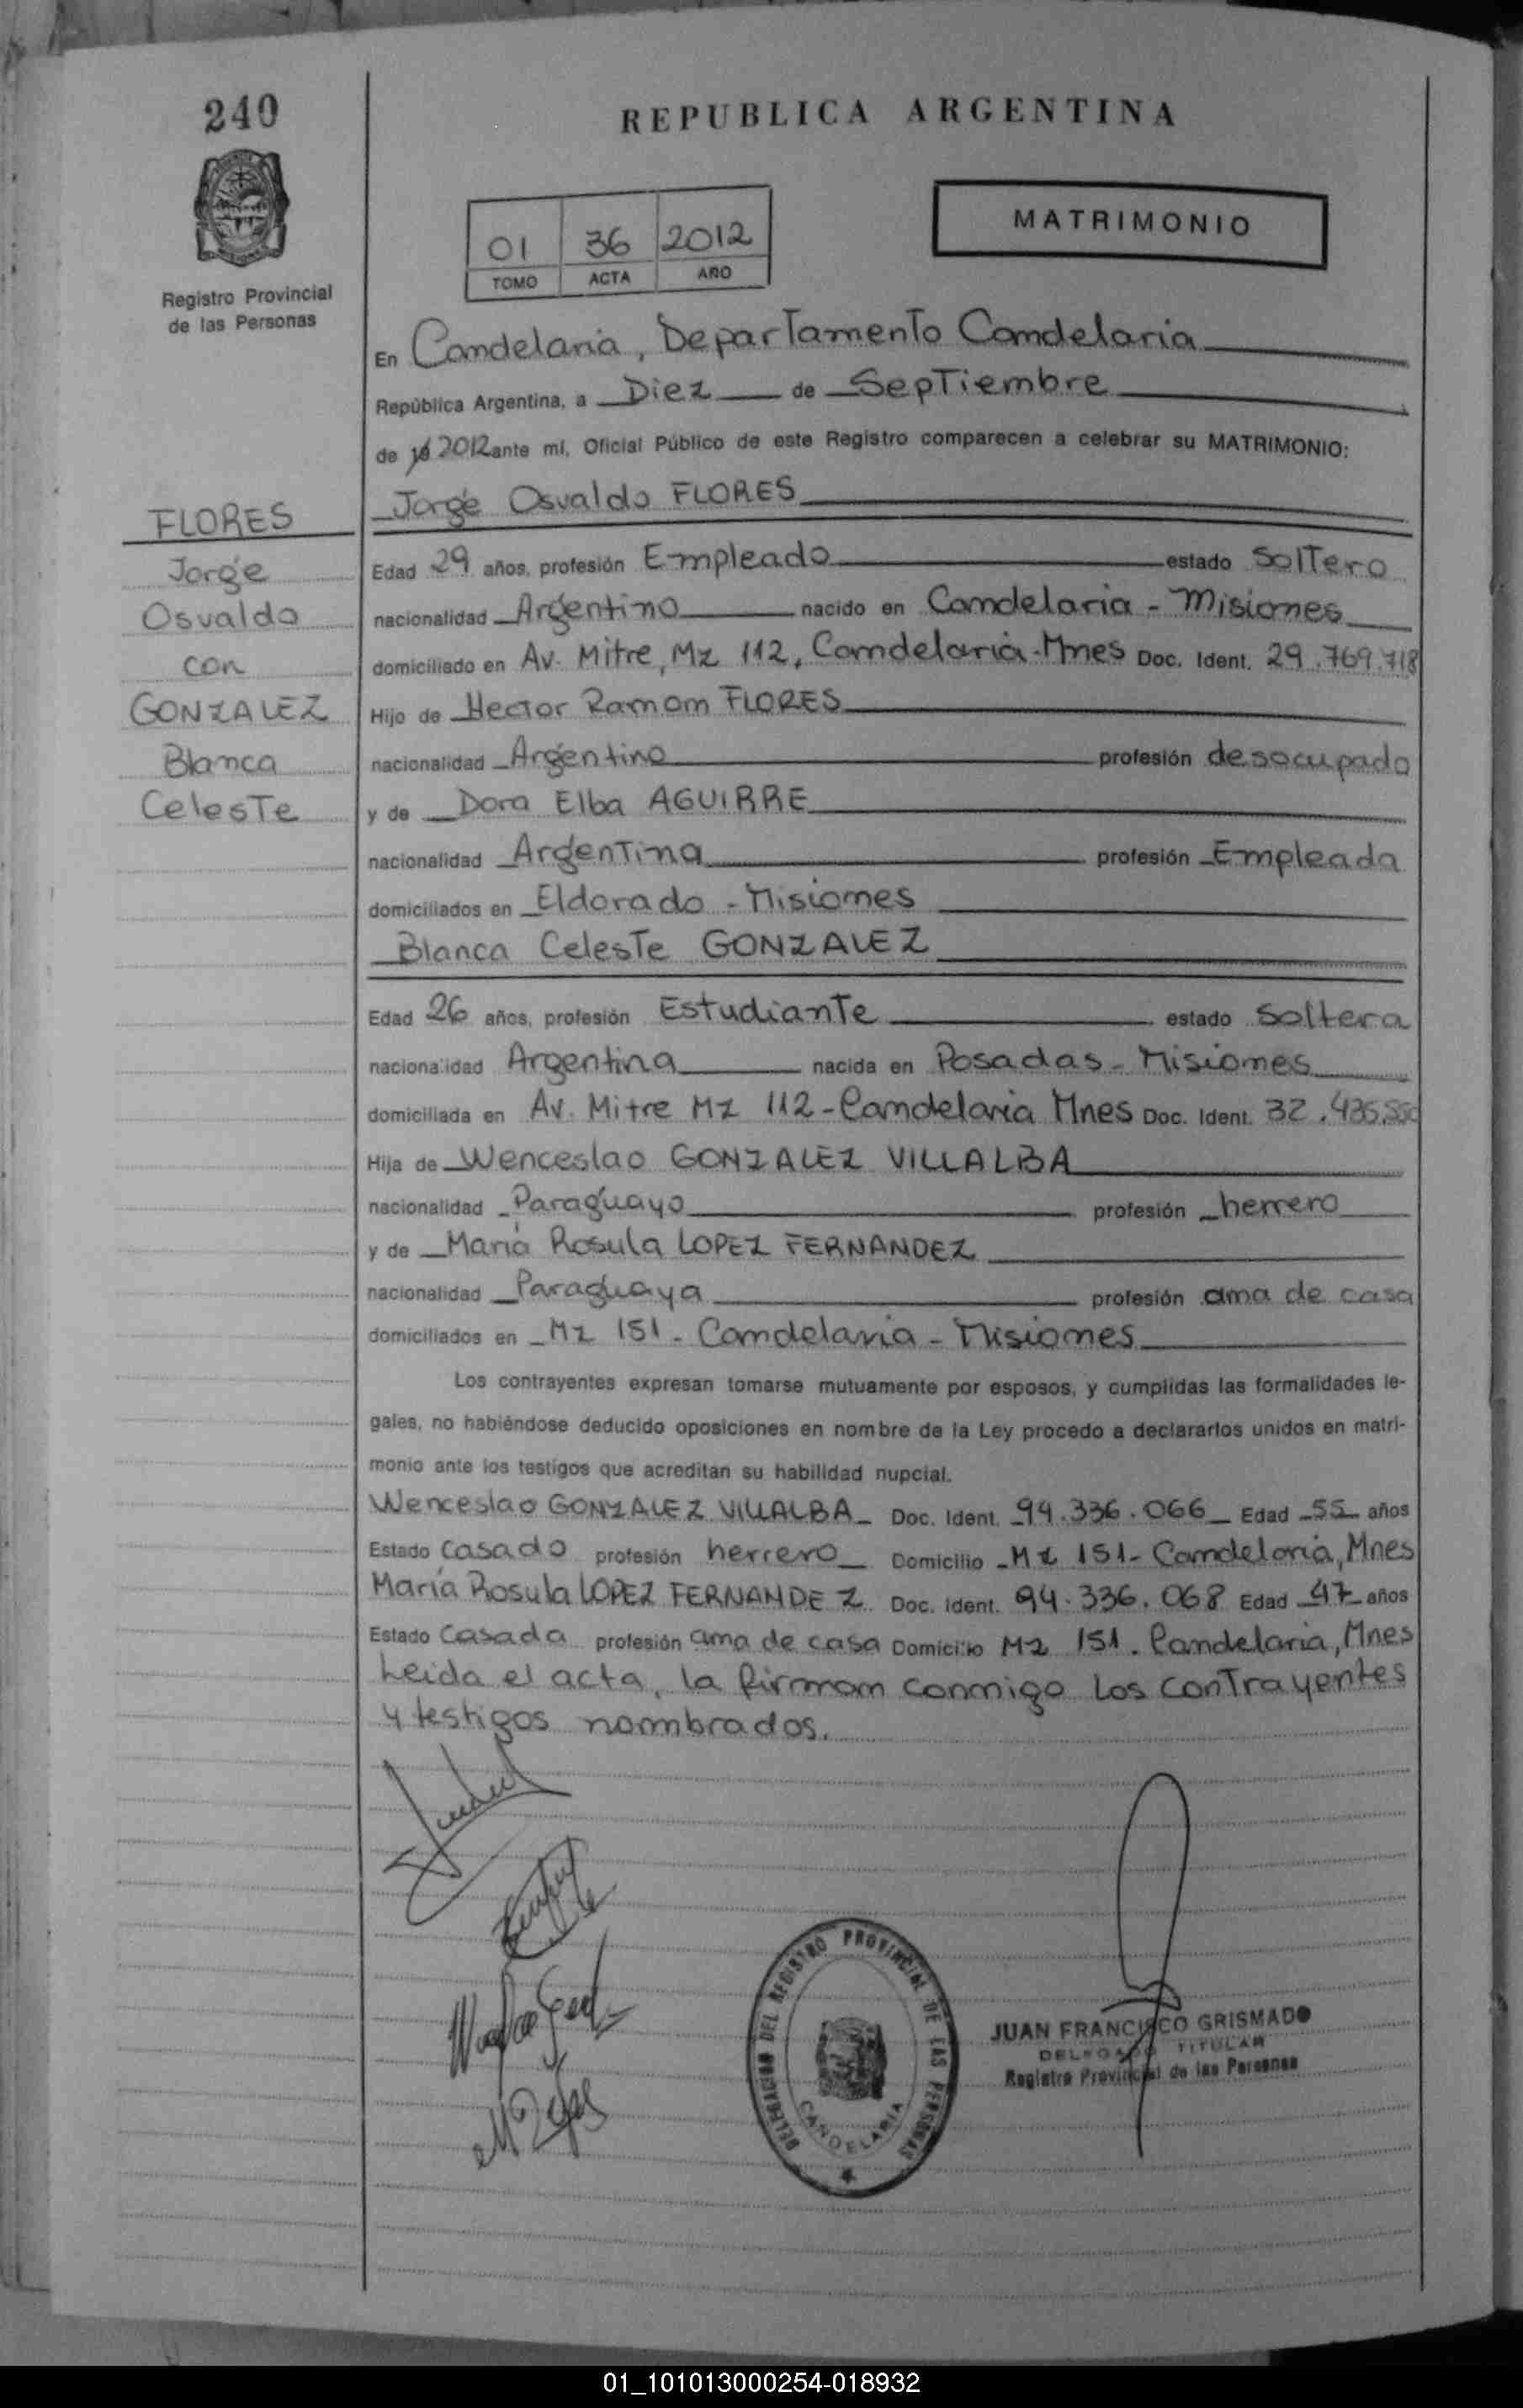 240
REPUBLICA ARGENTINA
Registro Provincial
de las Personas
01 36 2012
TOMO ACTA AÑO
MATRIMONIO
En Candelaria, Departamento Candelaria
República Argentina, a Diez de Septiembre
de 2012 ante mí, Oficial Público de este Registro comparecen a celebrar su MATRIMONIO:
Jorge Osvaldo FLORES
FLORES
Jorge
Osvaldo
con
GONZALEZ
Blanca
Celeste
Edad 29 años, profesión Empleado estado Soltero
nacionalidad Argentino nacido en Candelaria - Misiones
domiciliado en Av. Mitre, Mz 112, Candelaria - Mnes Doc. Ident. 29.769.718
Hijo de Hector Ramon FLORES
nacionalidad Argentino profesión desocupado
y de Dora Elba AGUIRRE
nacionalidad Argentina profesión Empleada
domiciliados en Eldorado - Misiones
Blanca Celeste GONZALEZ
Edad 26 años, profesión Estudiante estado Soltera
nacionalidad Argentina nacida en Posadas - Misiones
domiciliada en Av. Mitre Mz 112 - Candelaria Mnes Doc. Ident. 32.435.550
Hija de Wenceslao GONZALEZ VILLALBA
nacionalidad Paraguayo profesión herrero
y de María Rosula LOPEZ FERNANDEZ
nacionalidad Paraguaya profesión ama de casa
domiciliados en Mz 151 - Candelaria - Misiones
Los contrayentes expresan tomarse mutuamente por esposos, y cumplidas las formalidades le-
gales, no habiéndose deducido oposiciones en nombre de la Ley procedo a declararlos unidos en matri-
monio ante los testigos que acreditan su habilidad nupcial.
Wenceslao GONZALEZ VILLALBA Doc. Ident. 94.336.066 Edad 55 años
Estado Casado profesión herrero Domicilio Mz 151 - Candelaria, Mnes
María Rosula LOPEZ FERNANDEZ Doc. Ident. 94.336.068 Edad 47 años
Estado Casada profesión ama de casa Domicilio Mz 151. Candelaria, Mnes
Leida el acta, la firman conmigo los contrayentes
y testigos nombrados.
DELEGACION DEL REGISTRO PROVINCIAL DE LAS PERSONAS
CANDELARIA
JUAN FRANCISCO GRISMADO
DELEGADO TITULAR
Registro Provincial de las Personas
01_101013000254-018932